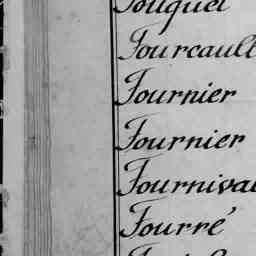 Fouquet
Fourcault
Fournier
Fournier
Fournival
Fourré